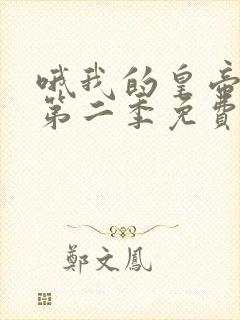 哦我的皇帝
第二季免費
鄭文鳳